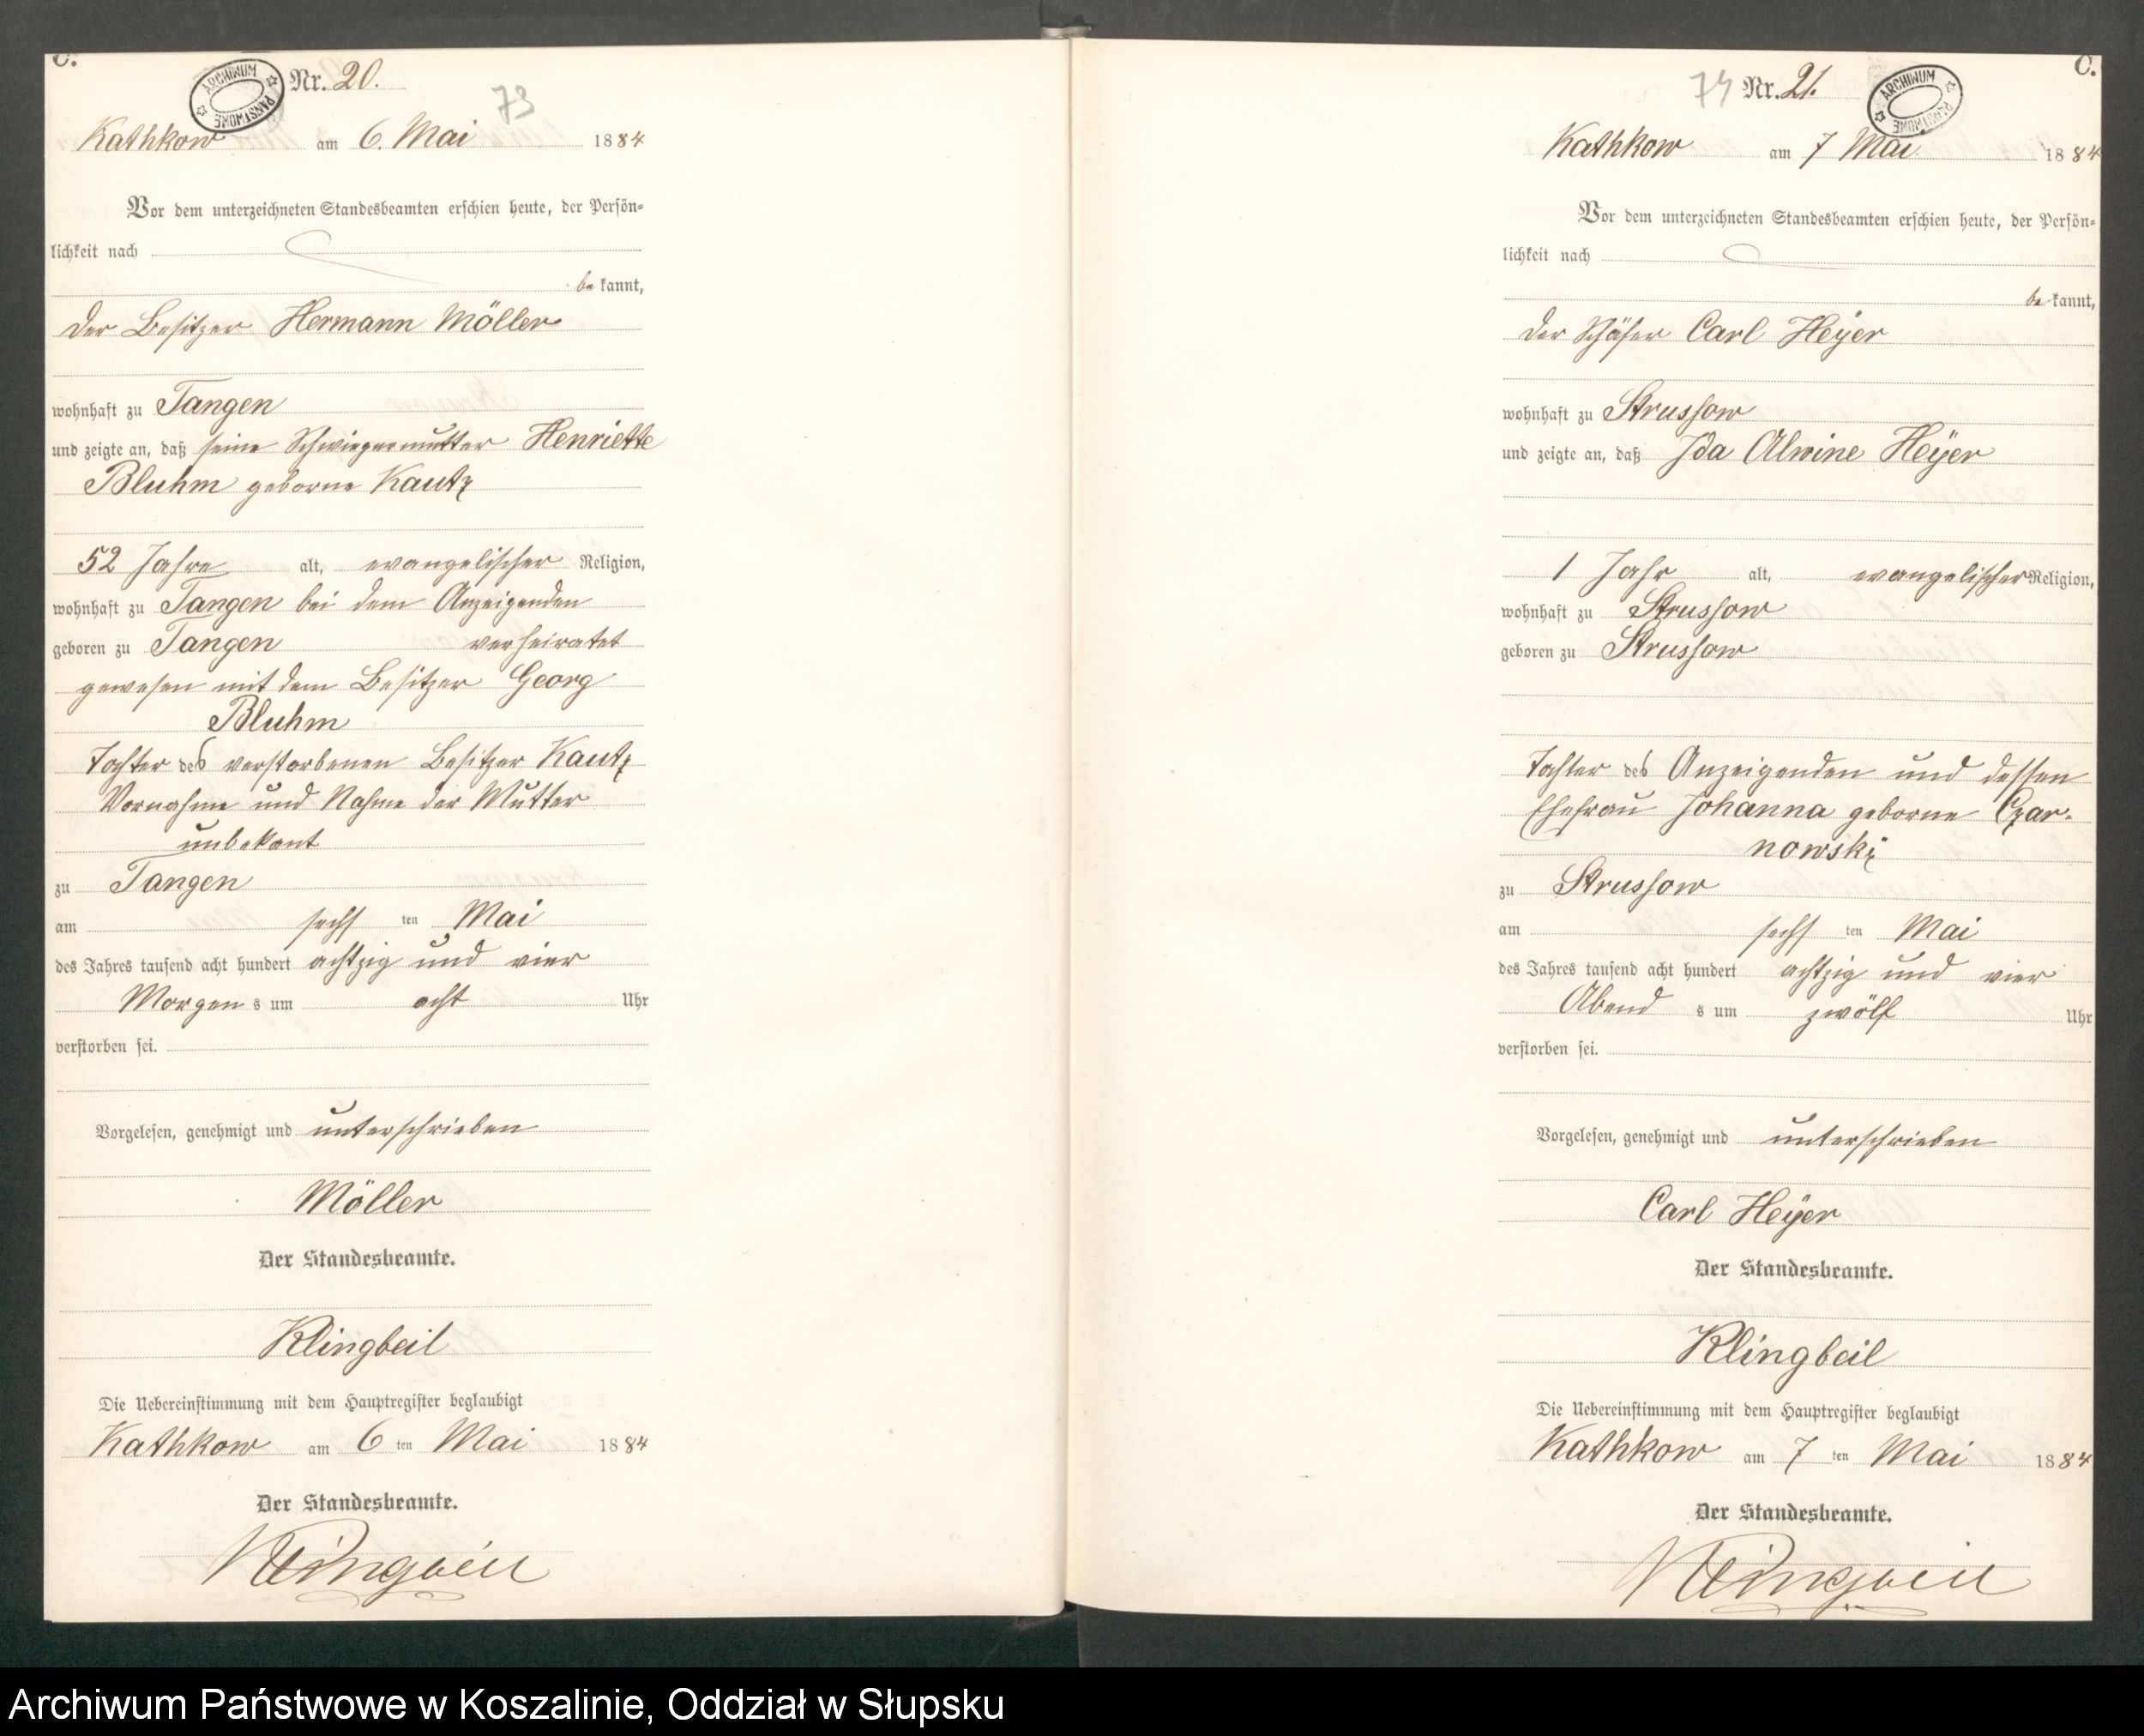 C.
ARCHIWUM PAŃSTWOWE
Nr. 20.
73
Kathkow am 6. Mai 1884
Vor dem unterzeichneten Standesbeamten erschien heute, der Persön-
lichkeit nach
bekannt,
der Besitzer Hermann Möller
wohnhaft zu Tangen
und zeigte an, daß seine Schwiegermutter Henriette
Bluhm geborne Kautz
52 Jahre alt, evangelischer Religion,
wohnhaft zu Tangen bei dem Anzeigenden
geboren zu Tangen verheiratet
gewesen mit dem Besitzer Georg
Bluhm
Tochter des verstorbenen Besitzer Kautz
Vornahme und Nahme der Mutter
unbekant
zu Tangen
am sechs ten Mai
des Jahres tausend acht hundert achtzig und vier
Morgens um acht Uhr
verstorben sei.
Vorgelesen, genehmigt und unterschrieben
Möller
Der Standesbeamte.
Klingbeil
Die Uebereinstimmung mit dem Hauptregister beglaubigt
Kathkow am 6 ten Mai 1884
Der Standesbeamte.
Klingbeil
C.
74
Nr. 21.
ARCHIWUM PAŃSTWOWE
Kathkow am 7 Mai 1884
Vor dem unterzeichneten Standesbeamten erschien heute, der Persön-
lichkeit nach
bekannt,
der Schäfer Carl Heÿer
wohnhaft zu Strussow
und zeigte an, daß Ida Alwine Heÿer
1 Jahr alt, evangelischer Religion,
wohnhaft zu Strussow
geboren zu Strussow
Tochter des Anzeigenden und dessen
Ehefrau Johanna geborne Czar-
nowski
zu Strussow
am sechs ten Mai
des Jahres tausend acht hundert achtzig und vier
Abends um zwölf Uhr
verstorben sei.
Vorgelesen, genehmigt und unterschrieben
Carl Heÿer
Der Standesbeamte.
Klingbeil
Die Uebereinstimmung mit dem Hauptregister beglaubigt
Kathkow am 7 ten Mai 1884
Der Standesbeamte.
Klingbeil
Archiwum Państwowe w Koszalinie, Oddział w Słupsku